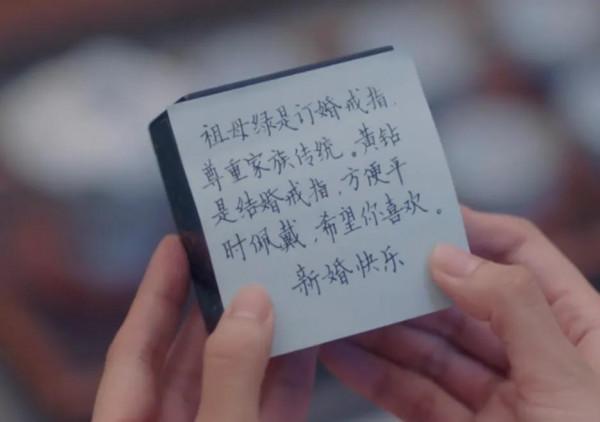 祖母绿是订婚戒指，
尊重家族传统。黄钻
是结婚戒指，方便平
时佩戴，希望你喜欢。
新婚快乐